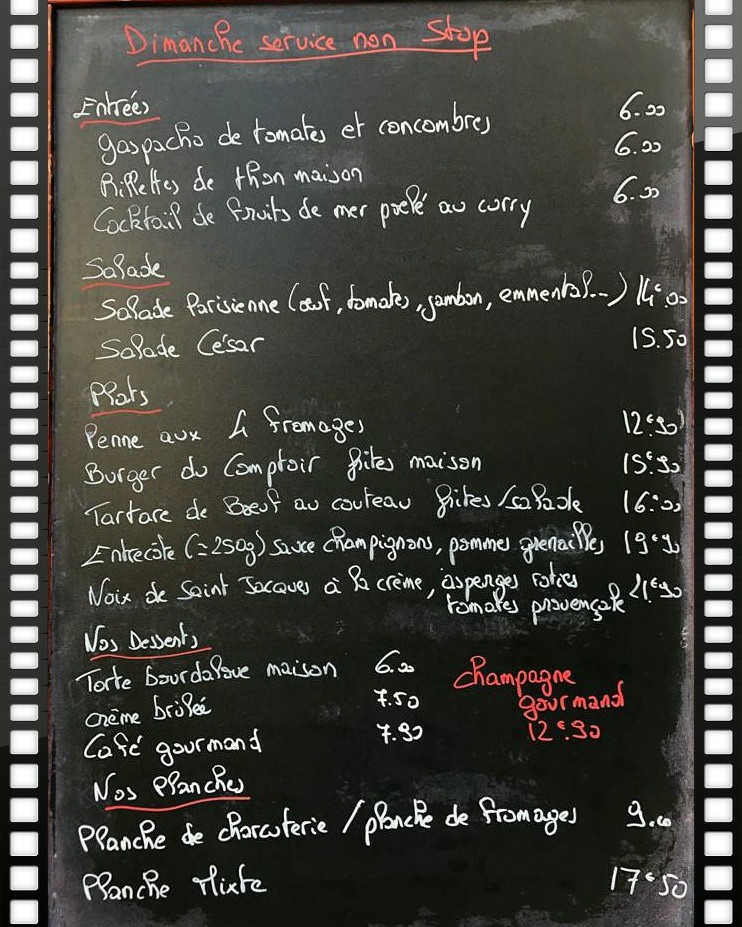 Dimanche service non Stop
Entrées
gaspacho de tomates et concombres 6.00
Rillettes de thon maison 6.00
Cocktail de fruits de mer poelé au curry 6.00
Salade
Salade Parisienne (œuf, tomates, jambon, emmental...) 14€.00
Salade César 15.50
Plats
Penne aux 4 fromages 12€90
Burger du Comptoir frites maison 15€90
Tartare de Bœuf au couteau frites/salade 16€00
Entrecôte (≃250g) sauce champignons, pommes grenailles 19€90
Noix de Saint Jacques à la crème, asperges roties 21€90
tomates provençale
Nos Desserts
Tarte bourdaloue maison 6.00
crème brûlée 7.50
Café gourmand 7.90
Champagne
gourmand
12€.90
Nos Planches
Planche de charcuterie / planche de fromages 9.00
Planche Mixte 17€50